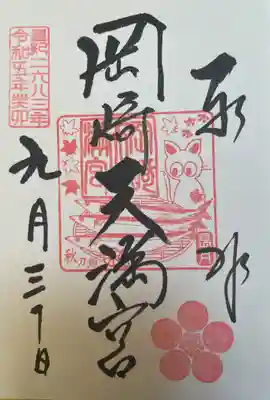 岡崎天満宮
皇紀二六八三年
令和五年癸卯
九月三十日
岡崎
天満宮
秋刀